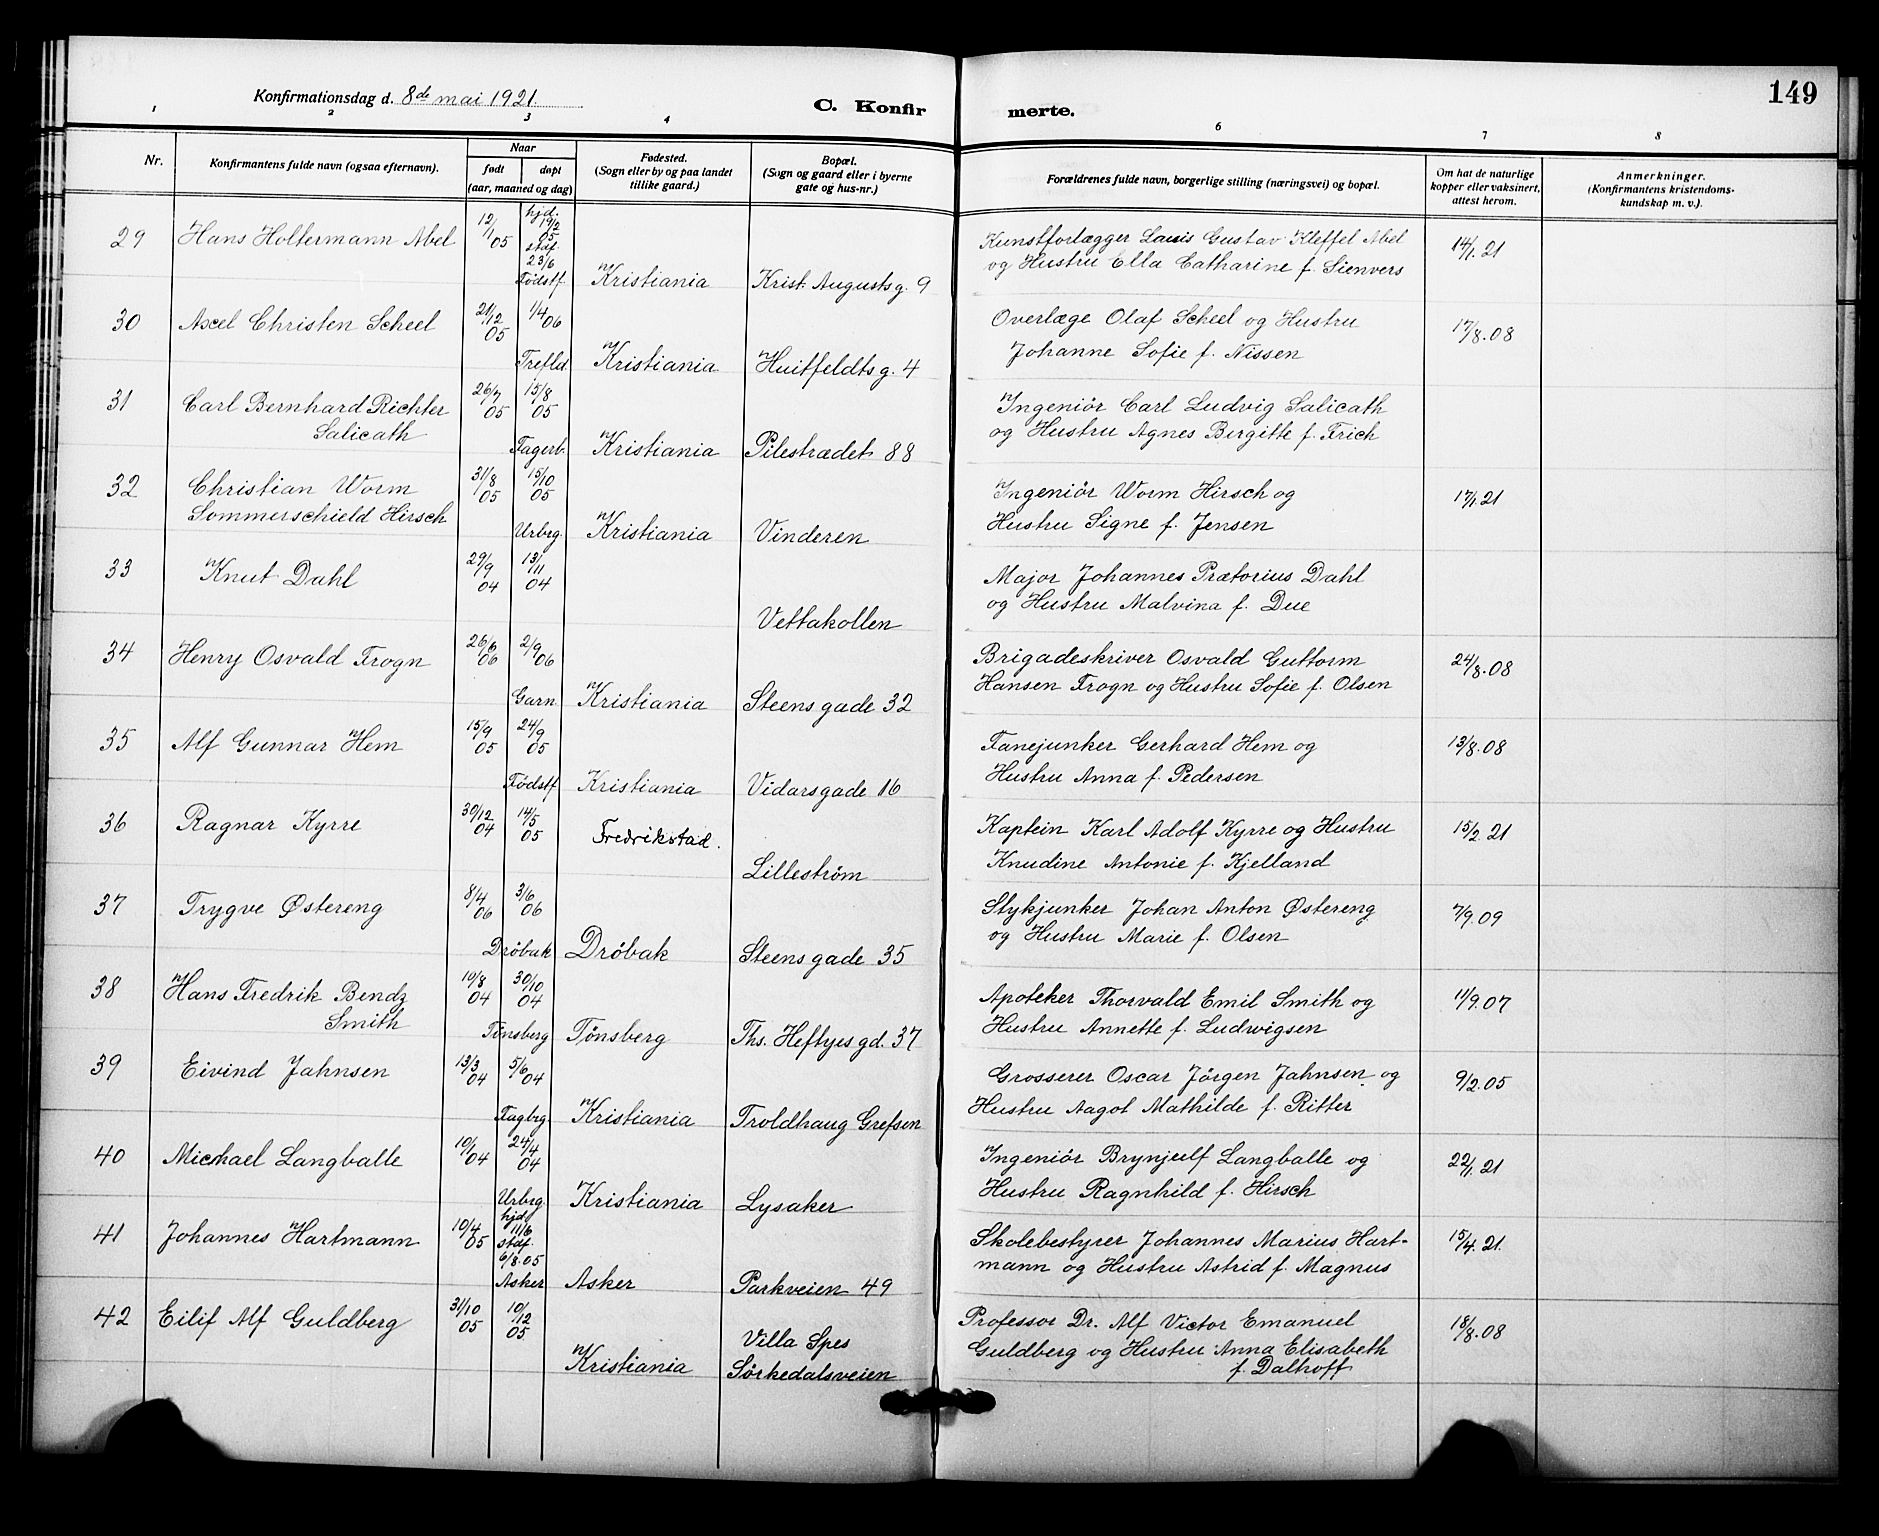 149
Konfirmationsdag d. 8de mai 1921.
C. Konfir merte.
1 2 3 4 6 7 8
Nr.
Konfirmantens fulde navn (ogsaa efternavn).
Naar
født
døpt
(aar, maaned og dag)
Fødested.
(Sogn eller by og paa landet
tillike gaard.)
Bopæl.
(Sogn og gaard eller i byerne
gate og hus-nr.)
Forældrenes fulde navn, borgerlige stilling (næringsvei) og bopæl.
Om hat de naturlige
kopper eller vaksinert,
attest herom.
Anmerkninger.
(Konfirmantens kristendoms-
kundskap m. v.).
29 Hans Holtermann Abel 12/1 05 hjd. 19/2 05 stdf. 23/6 Födstf. Kristiania Krist. Augustsg. 9
Kunstforlægger Louis Gustav Kleffel Abel
og Hustru Ella Catharine f. Sienvers
14/1.21
30 Axel Christen Scheel 21/12 05 1/4 06 Trefld. Kristiania Huitfeldtsg. 4
Overlæge Olaf Scheel og Hustru
Johanne Sofie f. Nissen
17/8.08
31 Carl Bernhard Richter
Salicath
26/7 05 15/8 05 Fagerb. Kristiania Pilestrædet 88
Ingeniör Carl Ludvig Salicath
og Hustru Agnes Birgitte f. Frich
32 Christian Worm
Sommerschield Hirsch
31/8 05 15/10 05 Urbrg. Kristiania Vinderen
Ingeniör Worm Hirsch og
Hustru Signe f. Jensen
17/1.21
33 Knut Dahl 29/9 04 13/11 04 Vettakollen
Major Johannes Prætorius Dahl
og Hustru Malvina f. Due
34 Henry Osvald Frogn 26/6 06 2/9 06 Garn. Kristiania Steens gade 32
Brigadeskriver Osvald Guttorm
Hansen Frogn og Hustru Sofie f. Olsen
24/8.08
35 Alf Gunnar Hem 15/9 05 24/9 05 Födstf. Kristiania Vidarsgade 16
Fanejunker Gerhard Hem og
Hustru Anna f. Pedersen
13/8.08
36 Ragnar Kyrre 30/12 04 14/5 05 Fredrikstad. Lilleström
Kaptein Karl Adolf Kyrre og Hustru
Knudine Antonie f. Kjelland
15/2.21
37 Trygve Østereng 8/4 06 3/6 06 Dröbak Dröbak Steens gade 35
Stykjunker Johan Anton Østereng
og Hustru Marie f. Olsen
7/9.09
38 Hans Fredrik Bendz
Smith
19/8 04 30/10 04 Tönsberg Tönsberg Ths. Heftyes gd. 37
Apoteker Thorvald Emil Smith og
Hustru Annette f. Ludwigsen
11/9.07
39 Eivind Jahnsen 13/3 04 5/6 04 Fagbrg. Kristiania Troldhaug Grefsen
Grosserer Oscar Jörgen Jahnsen og
Hustru Aagot Mathilde f. Ritter
9/2.05
40 Michael Langballe 10/1 04 24/4 04 Urbrg. Kristiania Lysaker
Ingeniör Brynjulf Langballe og
Hustru Ragnhild f. Hirsch
22/1.21
41 Johannes Hartmann 10/4 05 hjd. 11/6 stdf. 6/8.05 Asker Asker Parkveien 49
Skolebestyrer Johannes Marius Hart-
mann og Hustru Astrid f. Magnus
15/4.21.
42 Eilif Alf Guldberg 31/10 05 10/12 05 Kristiania Villa Spes
Sörkedalsveien
Professor Dr. Alf Victor Emanuel
Guldberg og Hustru Anna Elisabeth
f. Dalhoff
18/8.08